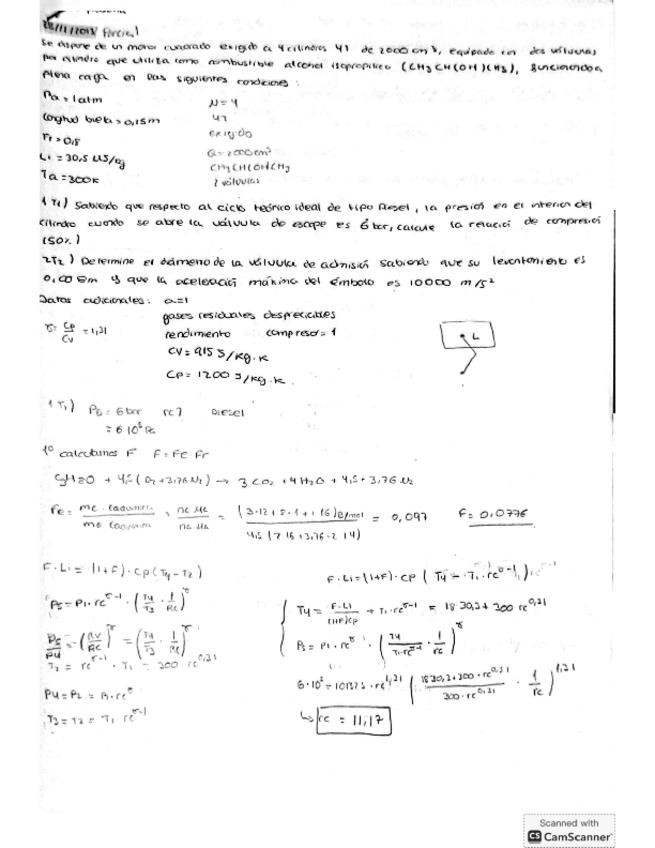 28/11/2018 Parcial
Se dispone de un motor cuadrado exigido a 4 cilindros 4T de 2000 cm³, equipado con dos válvulas
por cilindro que utiliza como combustible alcohol isopropílico (CH3 CH(OH)CH3), funcionando a
plena carga en las siguientes condiciones:
Pa = 1 atm N = 4
Longitud biela = 0,15m 4T
Fr = 0,8 exigido
Li = 30,5 MJ/kg 2000cm³
Ta = 300K CH3CH(OH)CH3
2 válvulas
1 T1) Sabiendo que respecto al ciclo teórico ideal de tipo Diesel, la presión en el interior del
cilindro cuando se abre la válvula de escape es 6 bar, calcule la relación de compresión
(50%)
2T2) Determine el diámetro de la válvula de admisión sabiendo que su levantamiento es
y que la aceleración máxima del émbolo es 10000 m/s²
Datos adicionales: a=1
γ = Cp/Cv = 1,31 gases residuales despreciables
rendimiento compresor = 1
CV = 915 J/kg·K
CP = 1200 J/kg·K
L
1 T1) P5 = 6 bar rc? Diesel
= 6·10⁵ Pa
1º calculamos F F = Fe Fr
C3H8O + 4,5 (O2 + 3,76 N2) → 3 CO2 + 4 H2O + 4,5·3,76 N2
= 0,097 F = 0,0776
F·Li = (1+F)·Cp (T4 - T2) F·Li = (1+F)·Cp (T4 - T1·rc^γ-1)
P5 = P1·rc^γ-1 · (T4/T3 · 1/rc)^γ T4 = F·Li/(1+F)Cp + T1·rc^γ-1 = 1830,2+300 rc^0,31
P5/P4 = (Rv/Rc)^γ = (T4/T3 · 1/rc)^γ P5 = P1·rc^γ · (T4/T1·rc^γ-1 · 1/rc)^γ
T2 = rc^γ-1 · T1 = 300 rc^0,31
P4 = P2 = P1·rc^γ 6·10⁵ = 101325·rc^1,31 (1830,2+300·rc^0,31/300·rc^0,31 · 1/rc)^1,31
T3 = T2 = T1·rc^γ-1 ↳ rc = 11,17
Scanned with
CS CamScanner